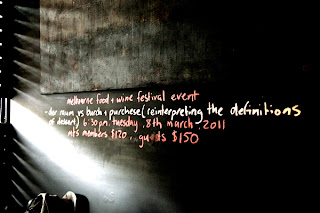 melbourne food + wine festival event
- der raum vs burch + purchese (reinterpreting the definitions
of dessert) 6:30pm tuesday, 8th march, 2011
mfs members $120, guests $150